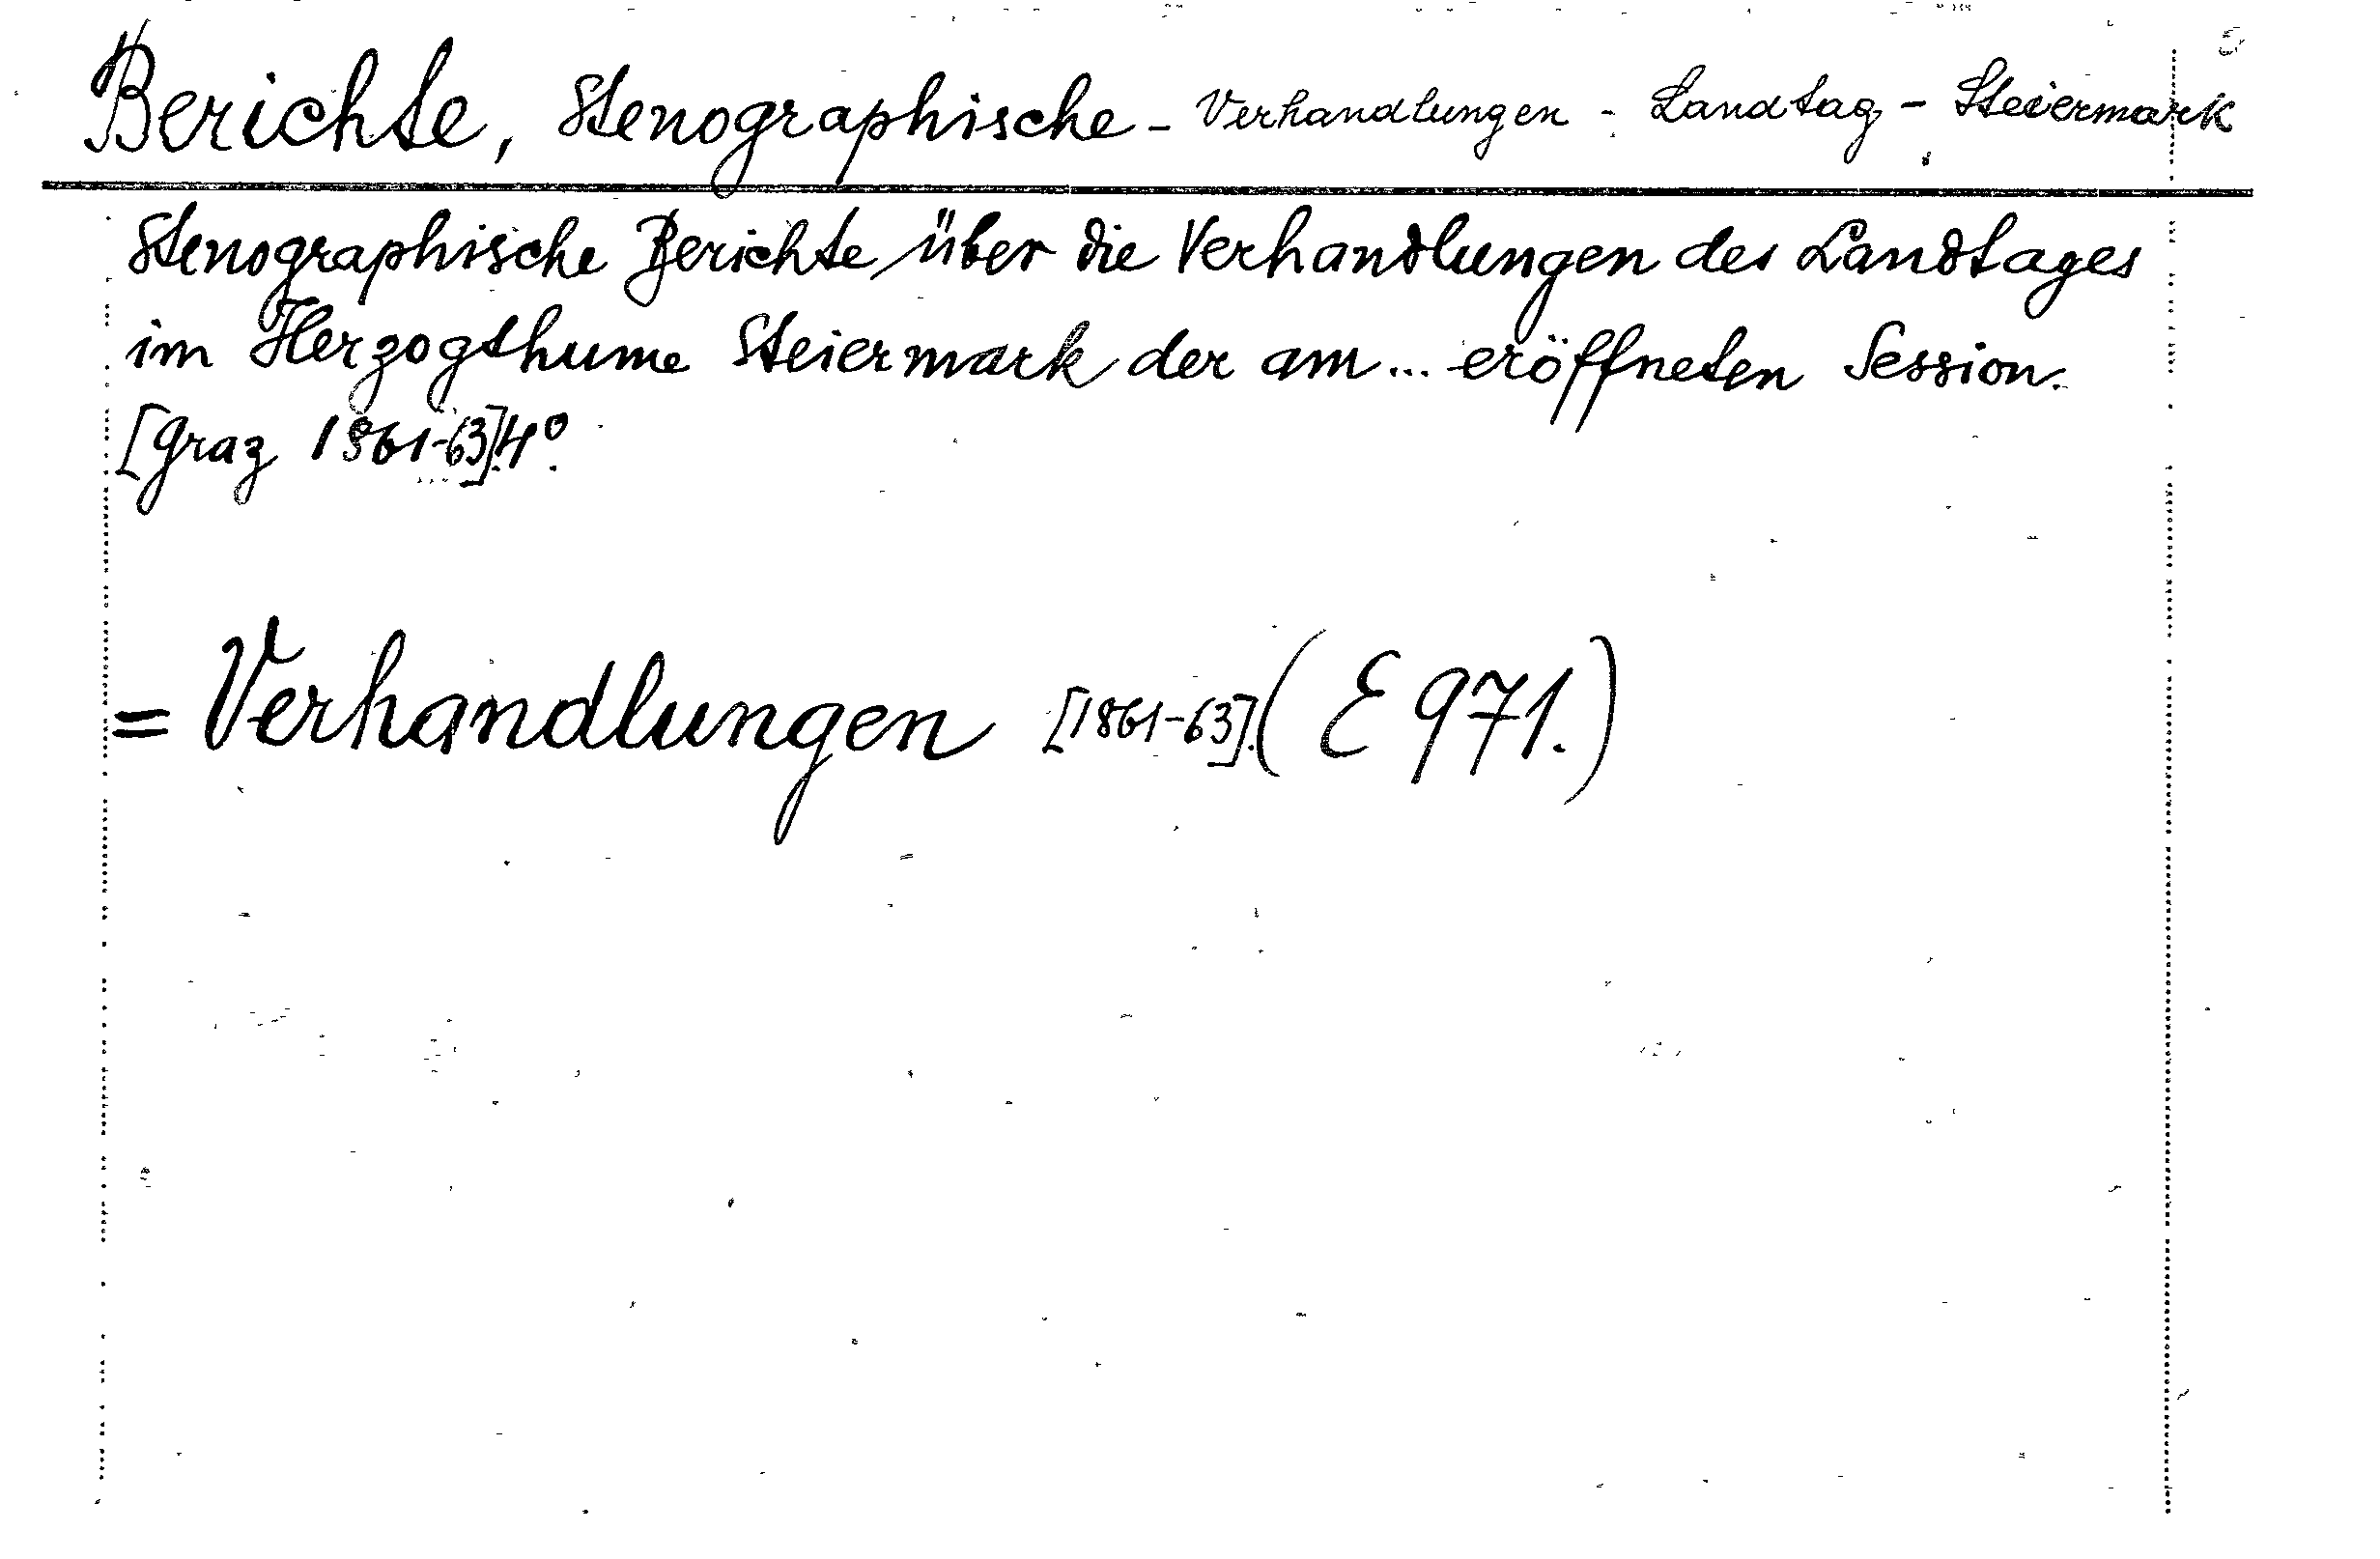 Berichte, Stenographische - Verhandlungen - Landtag - Steiermark
Stenographische Berichte über die Verhandlungen des Landtages
im Herzogthume Steiermark der am... eröffneten Session.
[Graz 1861-63].4°.
= Verhandlungen [1861-63]. (E 971.)